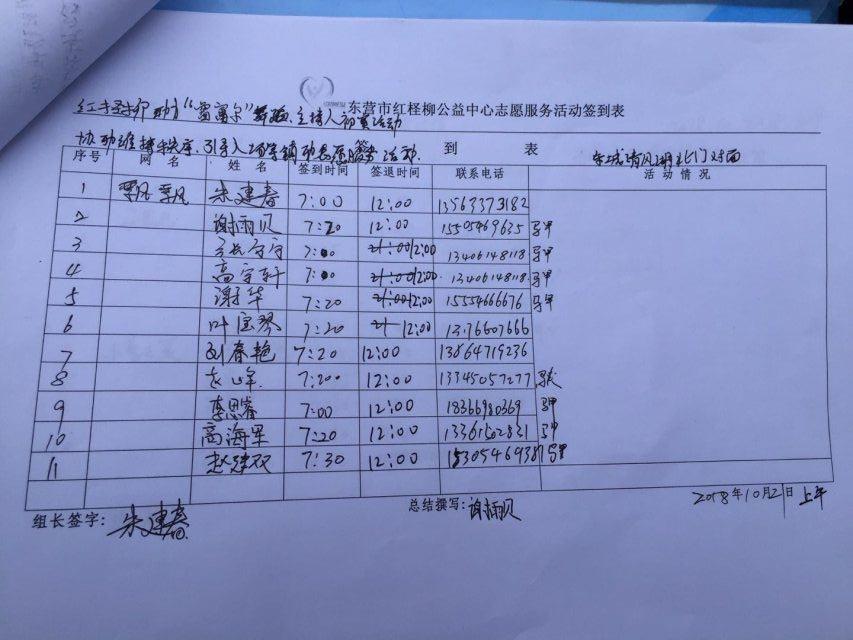 东营市红柽柳公益中心志愿服务活动签到表
红柽柳 协办"雷鸣尔" 主持人初赛活动
协助维持秩序、引导入场等辅助志愿服务活动
签 到 表
东城清风湖北门对面
序号 网名 姓名 签到时间 签退时间 联系电话 活动情况
1 飘风 朱建春 7:00 12:00 13563373182
2 谢雨贝 7:20 12:00 15505469635 马甲
3 守宇 7:00 12:00 13406148118 马甲
4 高宇轩 7:00 12:00 13406148118 马甲
5 谢华 7:20 12:00 15554666676 马甲
6 叶宝琴 7:20 12:00 13176607666
7 刘春艳 7:20 12:00 13864719236
8 7:200 12:00 13345057277
9 李思睿 7:00 12:00 18366980369 马甲
10 高海军 7:20 12:00 13361502831 马甲
11 赵建双 7:30 12:00 15305469387 马甲
组长签字: 朱建春
总结撰写: 谢雨贝
2018年10月21日 上午